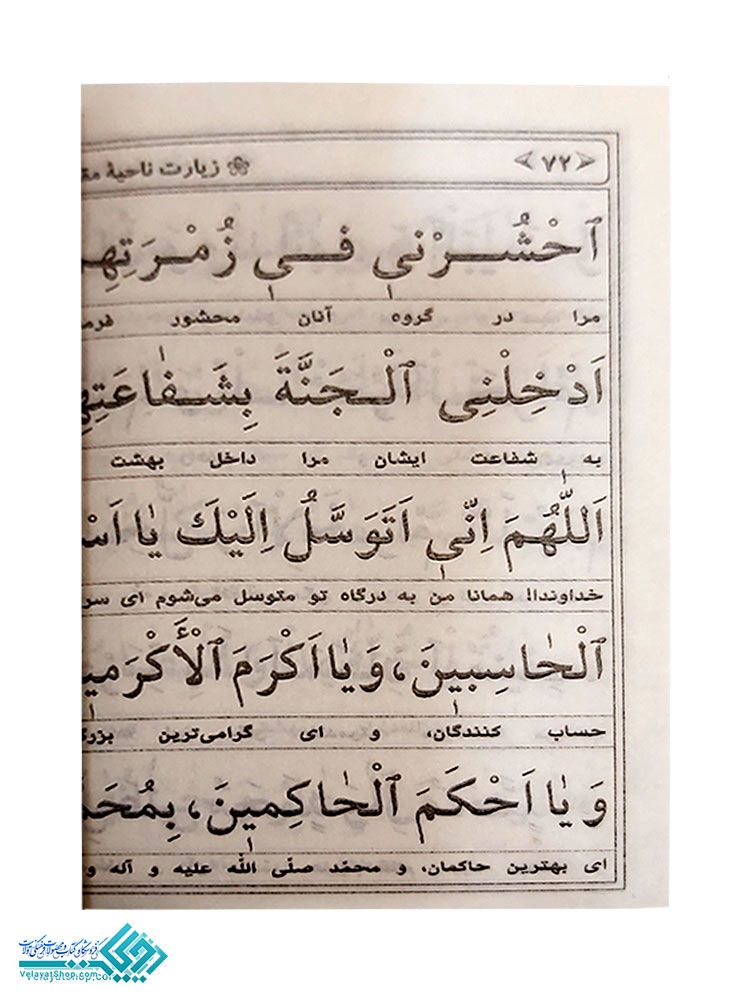 ۷۲ زیارت ناحیهٔ
اَحْشُرْنی فی زُمْرَتِهِ
مرا در گروه آنان محشور
اَدْخِلْنِی الْجَنَّةَ بِشَفٰاعَتِهِ
به شفاعت ایشان مرا داخل بهشت
اَللّٰهُمَ اِنّی اَتَوَسَّلُ اِلَیْكَ یٰا
خداوندا! همانا من به درگاه تو متوسل می‌شوم ای
الْحٰاسِبینَ، وَ یٰا اَکْرَمَ الْأَکْرَمی
حساب کنندگان، و ای گرامی‌ترین
وَ یٰا اَحْکَمَ الْحٰاکِمینَ، بِمُحَمَّ
ای بهترین حاکمان، و محمّد صلّی الله علیه و آله و
فروشگاه کتاب و محصولات فرهنگی ولایت
VelayatShop.com
Velayatshop.com